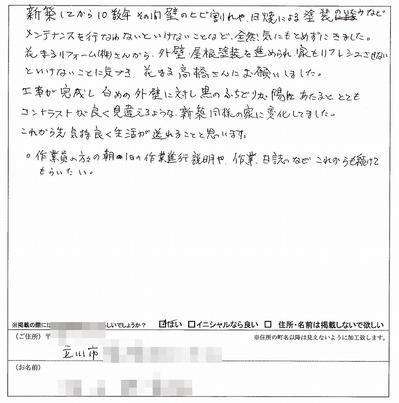 新築してから10数年その間壁のヒビ割れや、日焼による塗装など
メンテナンスを行なわないといけないことなど、全然気にもとめずにきました。
花まるリフォーム(株)さんから、外壁、屋根塗装を進められ家もリフレッシュさせない
といけないことに気づき、花まる高橋さんにお願いしました。
工事が完成し白めの外壁に対し黒のふちどりが陽にあたるととても
コントラストが良く見違えるような、新築同様の家に変化してました。
これから先気持良く生活が送れることと思います。
○作業員の方々の朝一日の作業進行説明や、作業、日誌のなどこれからも続けて
もらいたい。
※掲載の際には しいでしょうか? ☑はい □イニシャルなら良い □住所・名前は掲載しないで欲しい
(ご住所) 〒 ※住所の町名以降は見えないように加工致します。
立川市
(お名前)